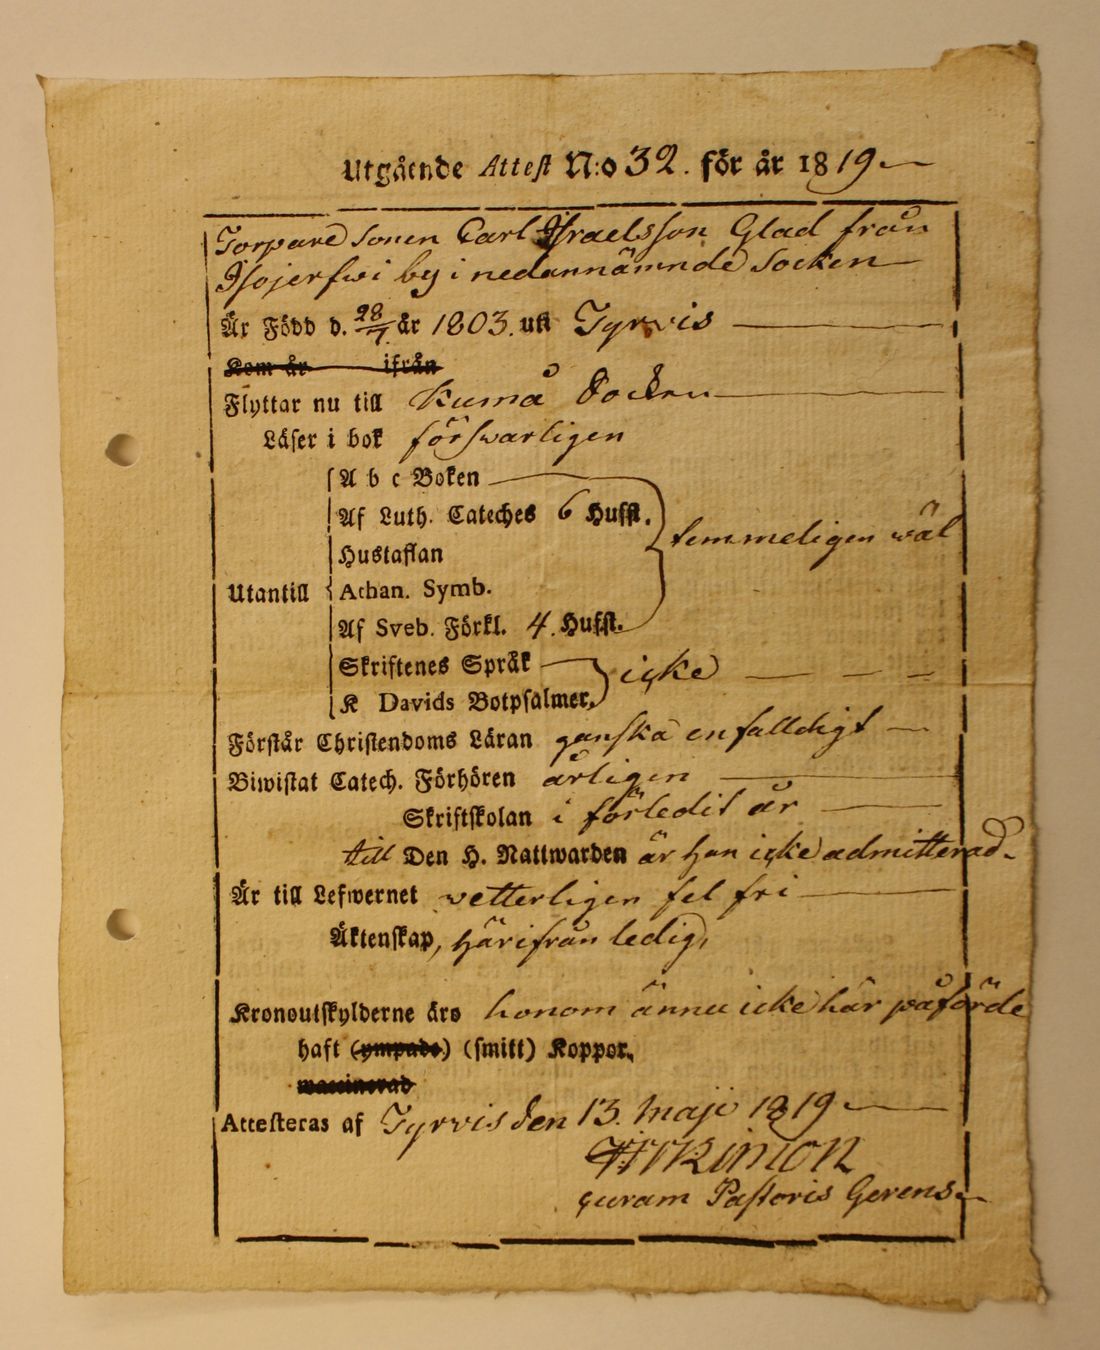 Utgående Attest N:o 32. för år 1819
Torpare sonen Carl Israelsson Glad från
Isojerfwi by i nedannämnde Socken
Är Född d. 28/7 år 1803. uti Tyrvis
Kom år ifrån
Flyttar nu till Kumå Socken
Läser i bok förswarligen
A b c Boken
Af Luth. Cateches 6 Hufst. temmeligen wäl
Hustaflan
Utantill Athan. Symb.
Af Sveb. Förkl. 4. Hufst.
Skriftenes Språk icke
K Davids Botpsalmer.
Förstår Christendoms Läran ganska enfalldigt
Biwistat Catech. Förhören årligen
Skriftskolan i förledit år
till Den H. Nattwarden är han icke admitterad.
Är till Lefwernet vetterligen fel fri
Äktenskap, härifrån ledig,
Kronoutskylderne äro honom ännu icke här påförde
haft (ympade) (smitt) Koppor.
waccinerad
Attesteras af Tyrvis den 13. Maji 1819
curam Pastoris Gerens.